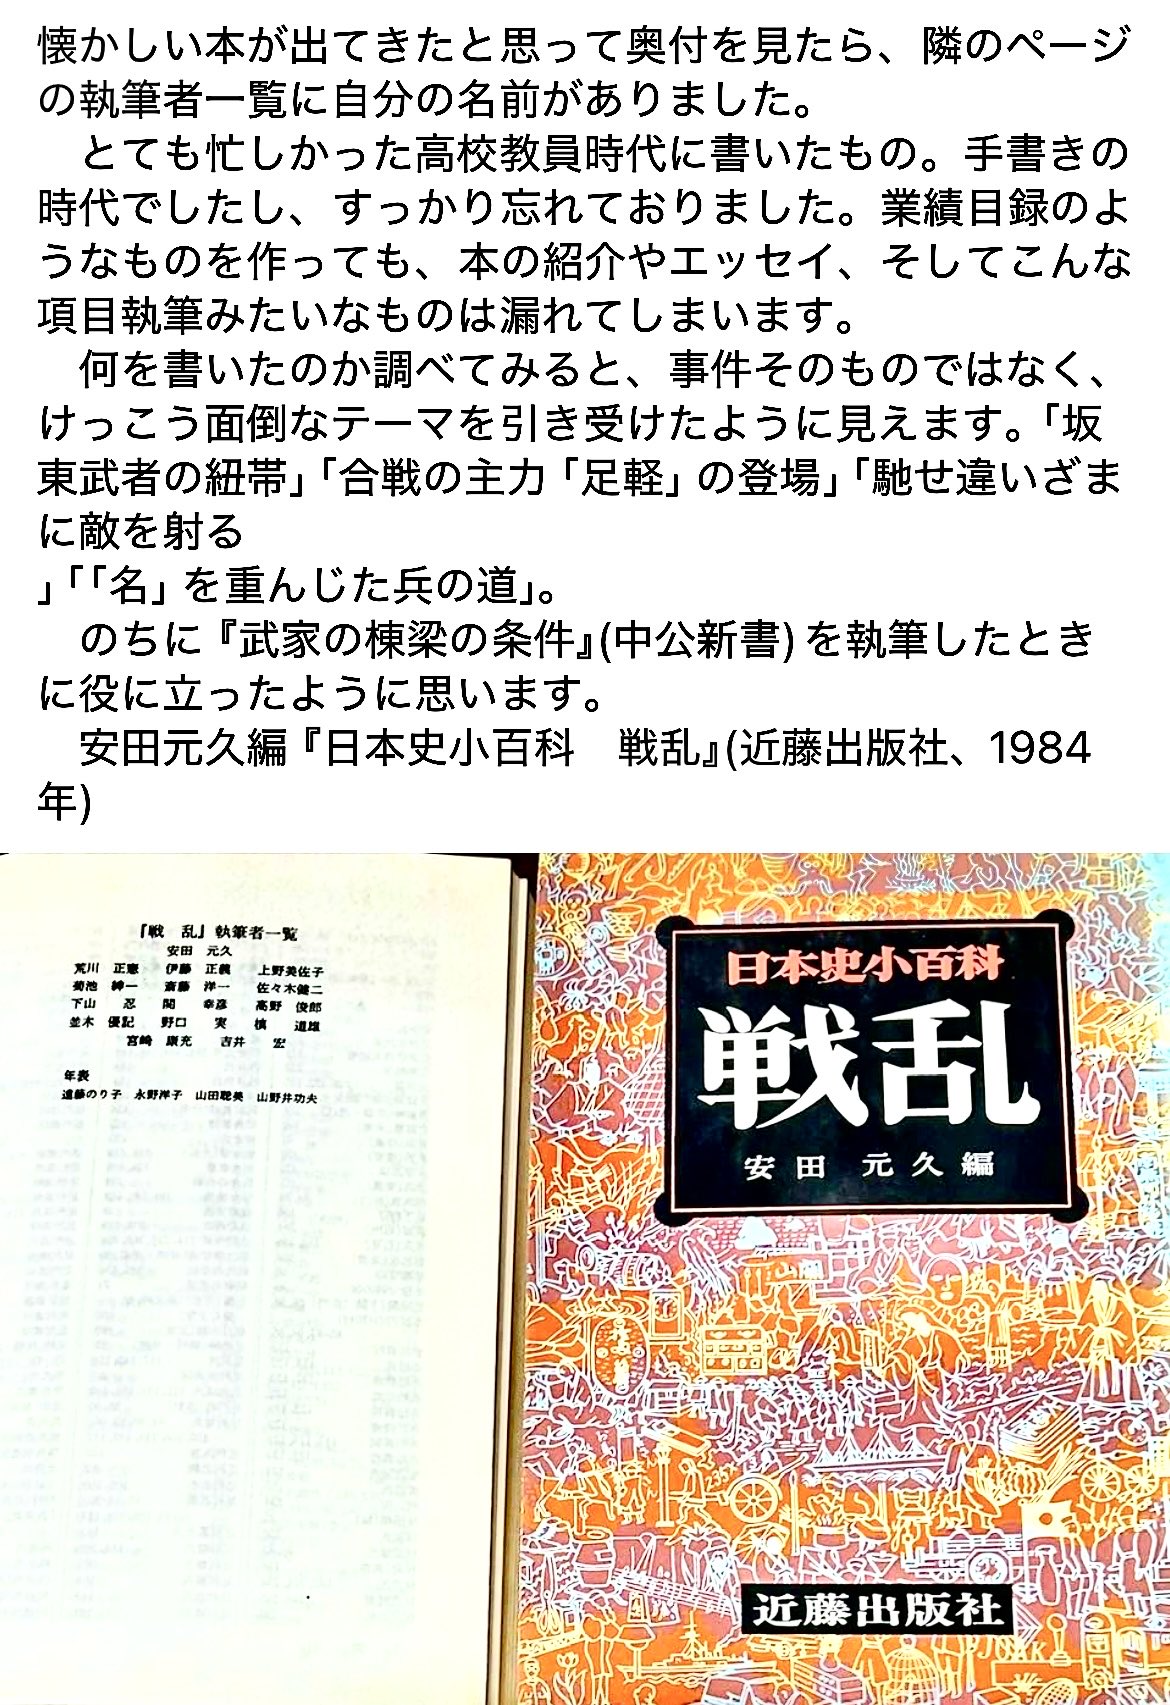 懐かしい本が出てきたと思って奥付を見たら、隣のページ
の執筆者一覧に自分の名前がありました。
　とても忙しかった高校教員時代に書いたもの。手書きの
時代でしたし、すっかり忘れておりました。業績目録のよ
うなものを作っても、本の紹介やエッセイ、そしてこんな
項目執筆みたいなものは漏れてしまいます。
　何を書いたのか調べてみると、事件そのものではなく、
けっこう面倒なテーマを引き受けたように見えます。「坂
東武者の紐帯」「合戦の主力「足軽」の登場」「馳せ違いざま
に敵を射る
」「「名」を重んじた兵の道」。
　のちに『武家の棟梁の条件』(中公新書)を執筆したとき
に役に立ったように思います。
　安田元久編『日本史小百科　戦乱』(近藤出版社、1984
年)
『戦　乱』執筆者一覧
安田　元久
荒川　正憲　伊藤　正義　上野美佐子
菊池　紳一　斎藤　洋一　佐々木健二
下山　忍　関　幸彦　高野　俊郎
並木　優記　野口　実　槙　道雄
宮崎　康充　吉井　宏
年表
遠藤のり子　永野洋子　山田聡美　山野井功夫
日本史小百科
戦乱
安田　元久編
近藤出版社